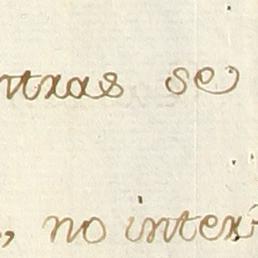 ntras se
, no inter